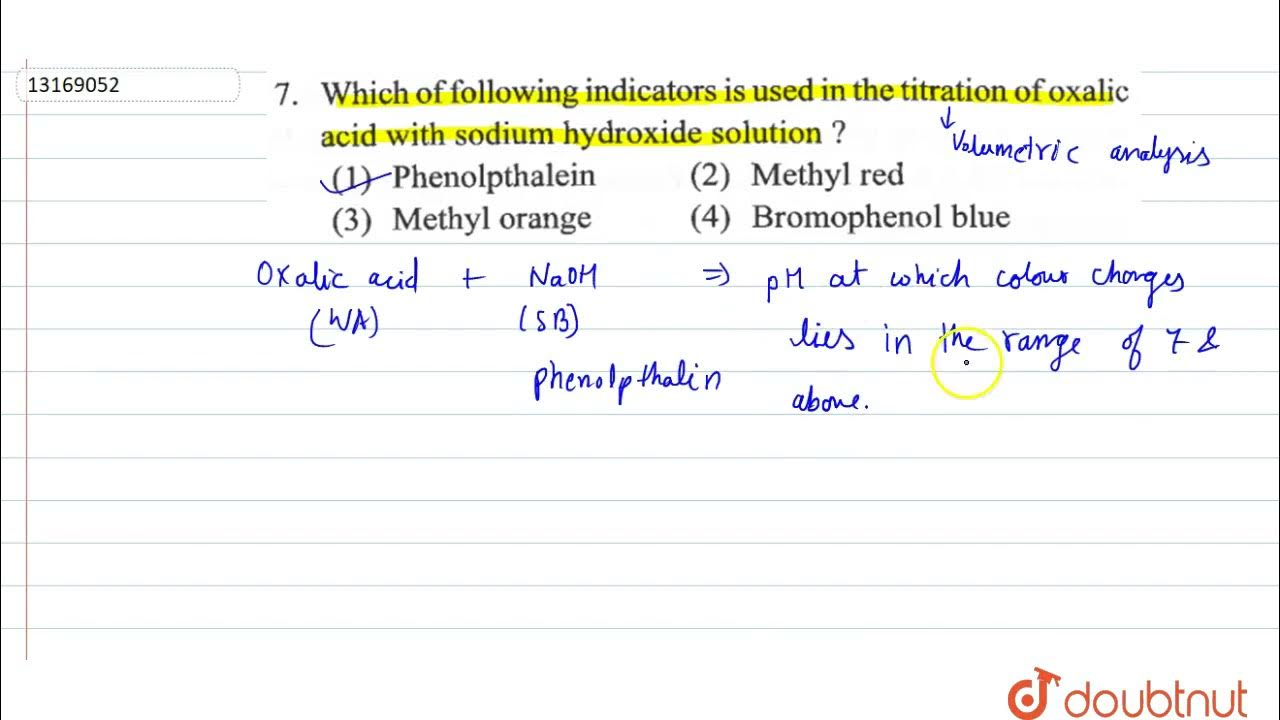 13169052
7. Which of following indicators is used in the titration of oxalic
acid with sodium hydroxide solution ?
↓
Volumetric analysis
(1) Phenolpthalein (2) Methyl red
(3) Methyl orange (4) Bromophenol blue
Oxalic acid + NaOH ⇒ pH at which colour changes
(WA) (SB) lies in the range of 7 &
phenolpthalin above.
doubtnut